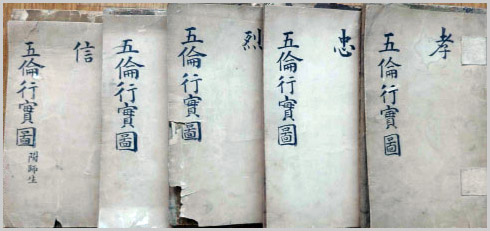 孝
五倫行實圖
忠
五倫行實圖
烈
五倫行實圖
五倫行實圖
信
五倫行實圖
師生